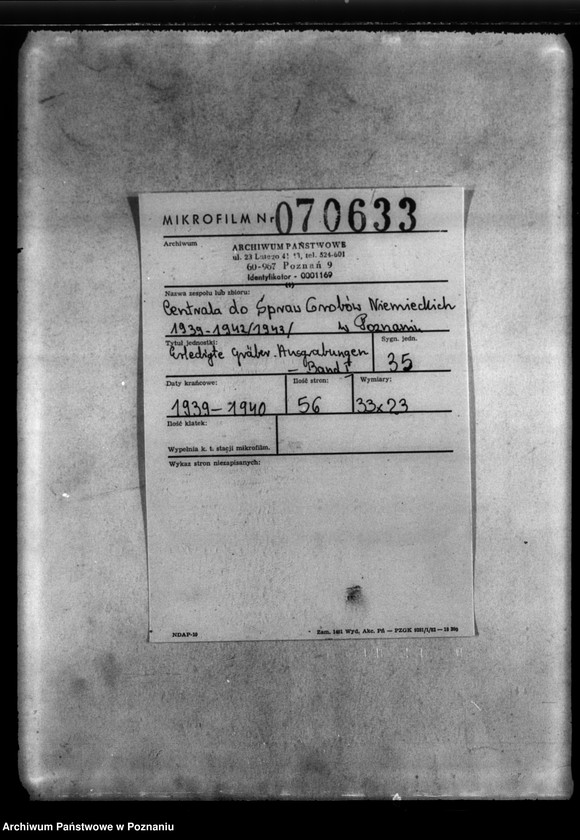 MIKROFILM Nr 070633
Archiwum
ARCHIWUM PAŃSTWOWE
ul. 23 Lutego 41/43, tel. 524-601
60-967 Poznań 9
Identyfikator - 0001169
Nazwa zespołu lub zbioru:
Centrala do Spraw Grobów Niemieckich
1939-1942/1943/ w Poznaniu
Tytuł jednostki:
Sygn. jedn.
Erledigte Gräber-Ausgrabungen
- Band I
35
Daty krańcowe:
Ilość stron:
Wymiary:
1939-1940
56
33x23
Ilość klatek:
Wypełnia k. t. stacji mikrofilm.
Wykaz stron niezapisanych:
NDAP-18
Zam. 1401 Wyd, Akc. Pń — PZGK
Archiwum Państwowe w Poznaniu